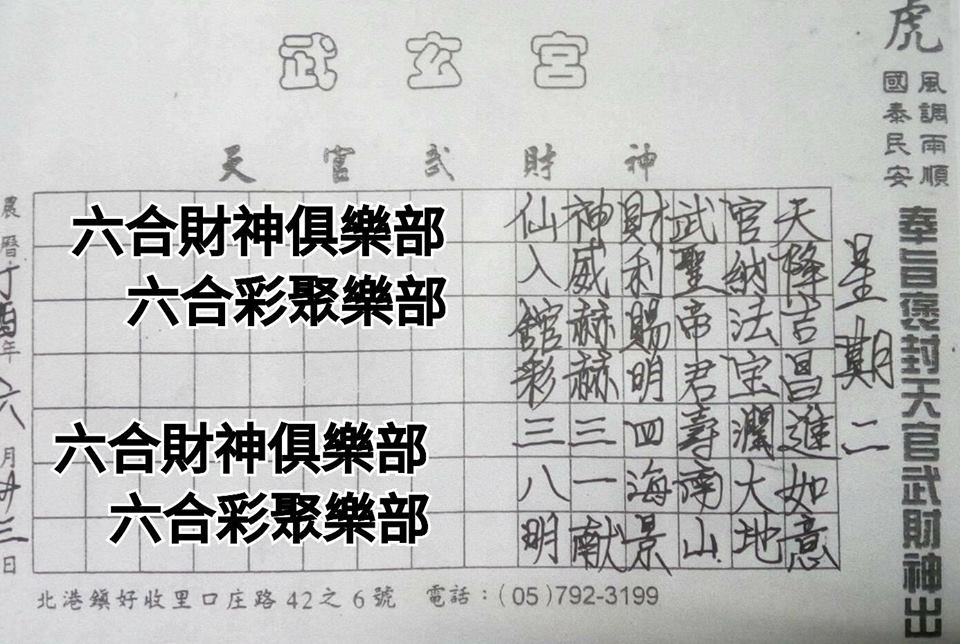 武玄宮
天官武財神
虎
風調雨順
國泰民安
奉旨褒封天官武財神出
星期二
天降吉昌進如意
官納法宝瀾大地
武聖帝君壽南山
財利賜明四海景
神威赫赫三一献
仙入館彩三八明
六合財神俱樂部
六合彩聚樂部
六合財神俱樂部
六合彩聚樂部
農曆丁酉年六月廿三日
北港鎮好收里口庄路42之6號 電話：(05)792-3199